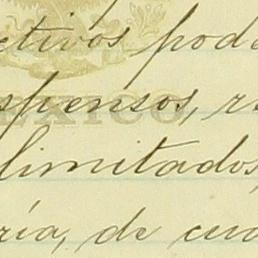 ctivos pode
spensos, re
MEXICO
limitados,
ría, de cua